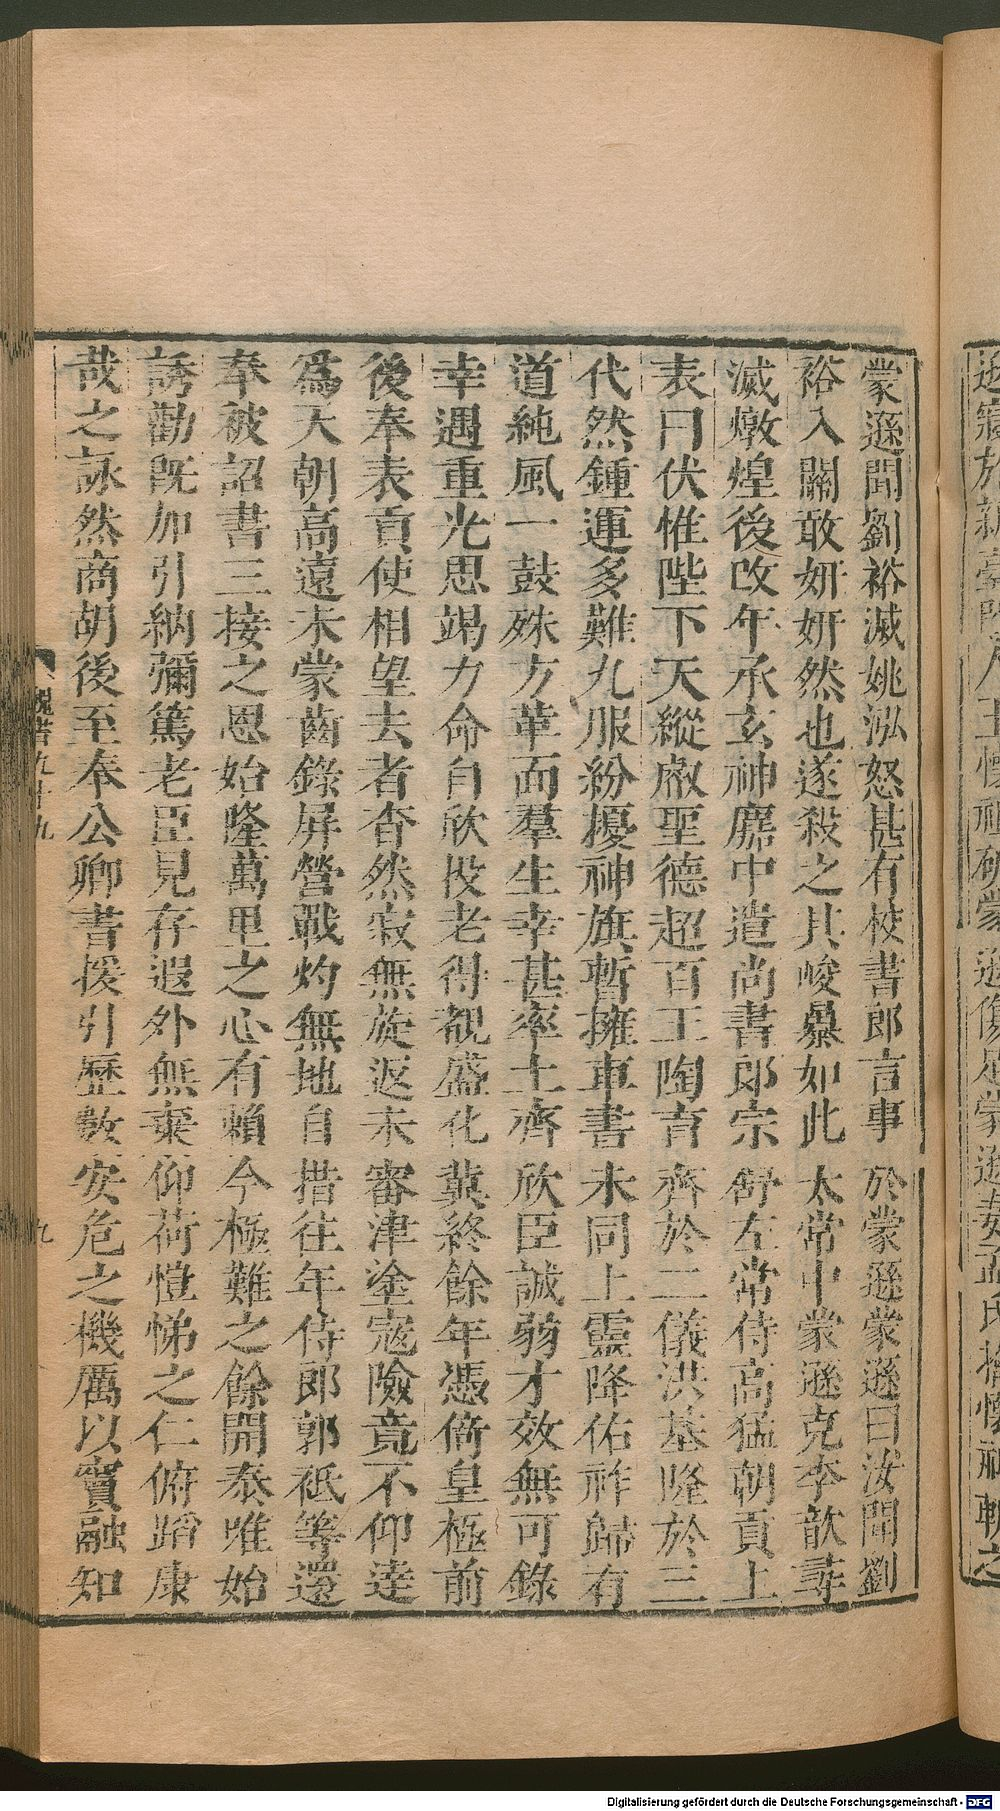 蒙遜聞劉裕滅姚泓怒甚有校書郎言事於蒙遜蒙遜曰汝聞劉
裕入關敢妍妍然也遂殺之其峻暴如此太常中蒙遜克李歆尋
滅燉煌後改年承玄神䴥中遣尚書郎宗舒左常侍高猛朝貢上
表曰伏惟陛下天縱叡聖德超百王陶育齊於二儀洪基隆於三
代然鍾運多難九服紛擾神旗暫擁車書未同上靈降佑祚歸有
道純風一鼓殊方革面羣生幸甚率土齊欣臣誠弱才效無可錄
幸遇重光思竭力命自欣投老得覩盛化冀終餘年憑倚皇極前
後奉表貢使相望去者杳然寂無旋返未審津塗寇險竟不仰達
爲天朝高遠未蒙齒錄屏營戰灼無地自措往年侍郎郭祗等還
奉被詔書三接之恩始隆萬里之心有賴今極難之餘開泰唯始
誘勸旣加引納彌篤老臣見存遐外無棄仰荷愷悌之仁俯蹈康
哉之詠然商胡後至奉公卿書援引歷數安危之機厲以竇融知
魏書九十九
九
Digitalisierung gefördert durch die Deutsche Forschungsgemeinschaft - DFG